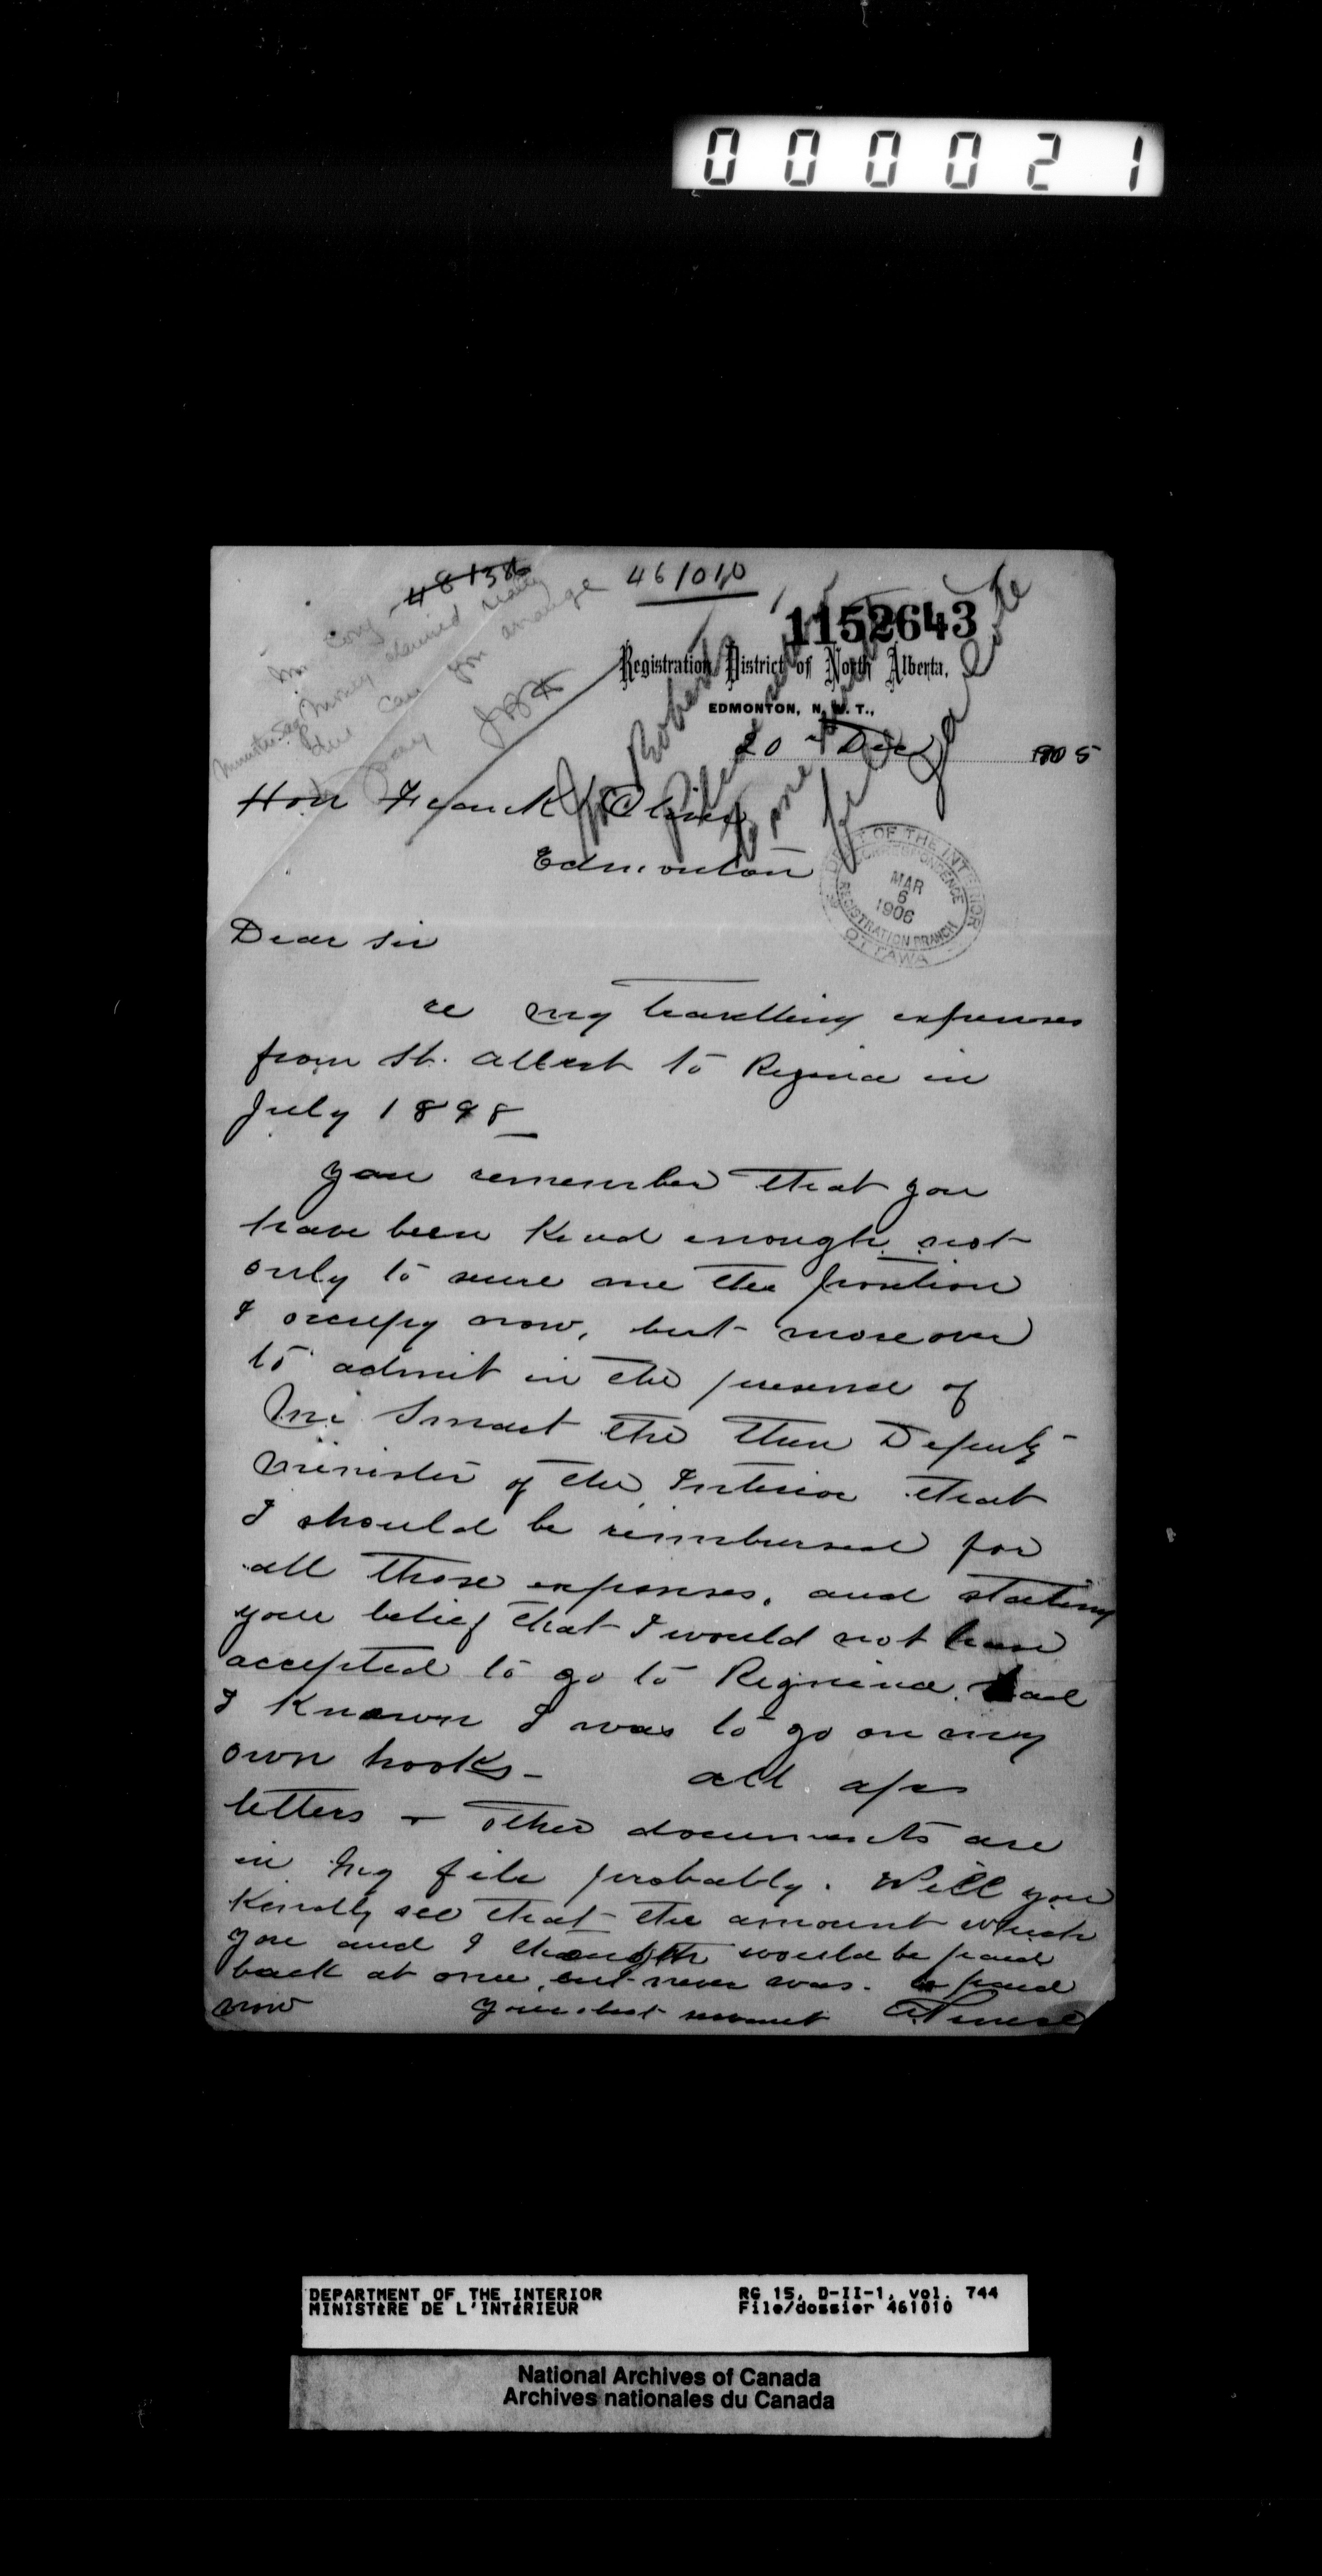 000021
48136
461010
1152643
Mr Cory
Minister says money claimed really
due Can you arrange
to pay
Registration District of North Alberta,
EDMONTON, N. W. T.,
20th Dec 1905
Hon Frank Oliver
Edmonton
DEPT OF THE INTERIOR
CORRESPONDENCE
MAR
6
1906
REGISTRATION BRANCH
OTTAWA
Dear Sir
re my travelling expenses
from St. Albert to Regina in
July 1898
you remember that you
have been kind enough not
only to secure me the position
I occupy now, but moreover
to admit in the presence of
Mr Smart the then Deputy
minister of the Interior that
I should be reimbursed for
all those expenses, and stating
your belief that I would not have
accepted to go to Regina had
I known I was to go on my
own hooks - all
letters & other documents are
in my file probably. Will you
Kindly see that the amount which
you and I thought would be paid
back at once, but never was. be paid
now your obed servant
DEPARTMENT OF THE INTERIOR RG 15, D-II-1, vol. 744
MINISTÈRE DE L'INTÉRIEUR File/dossier 461010
National Archives of Canada
Archives nationales du Canada